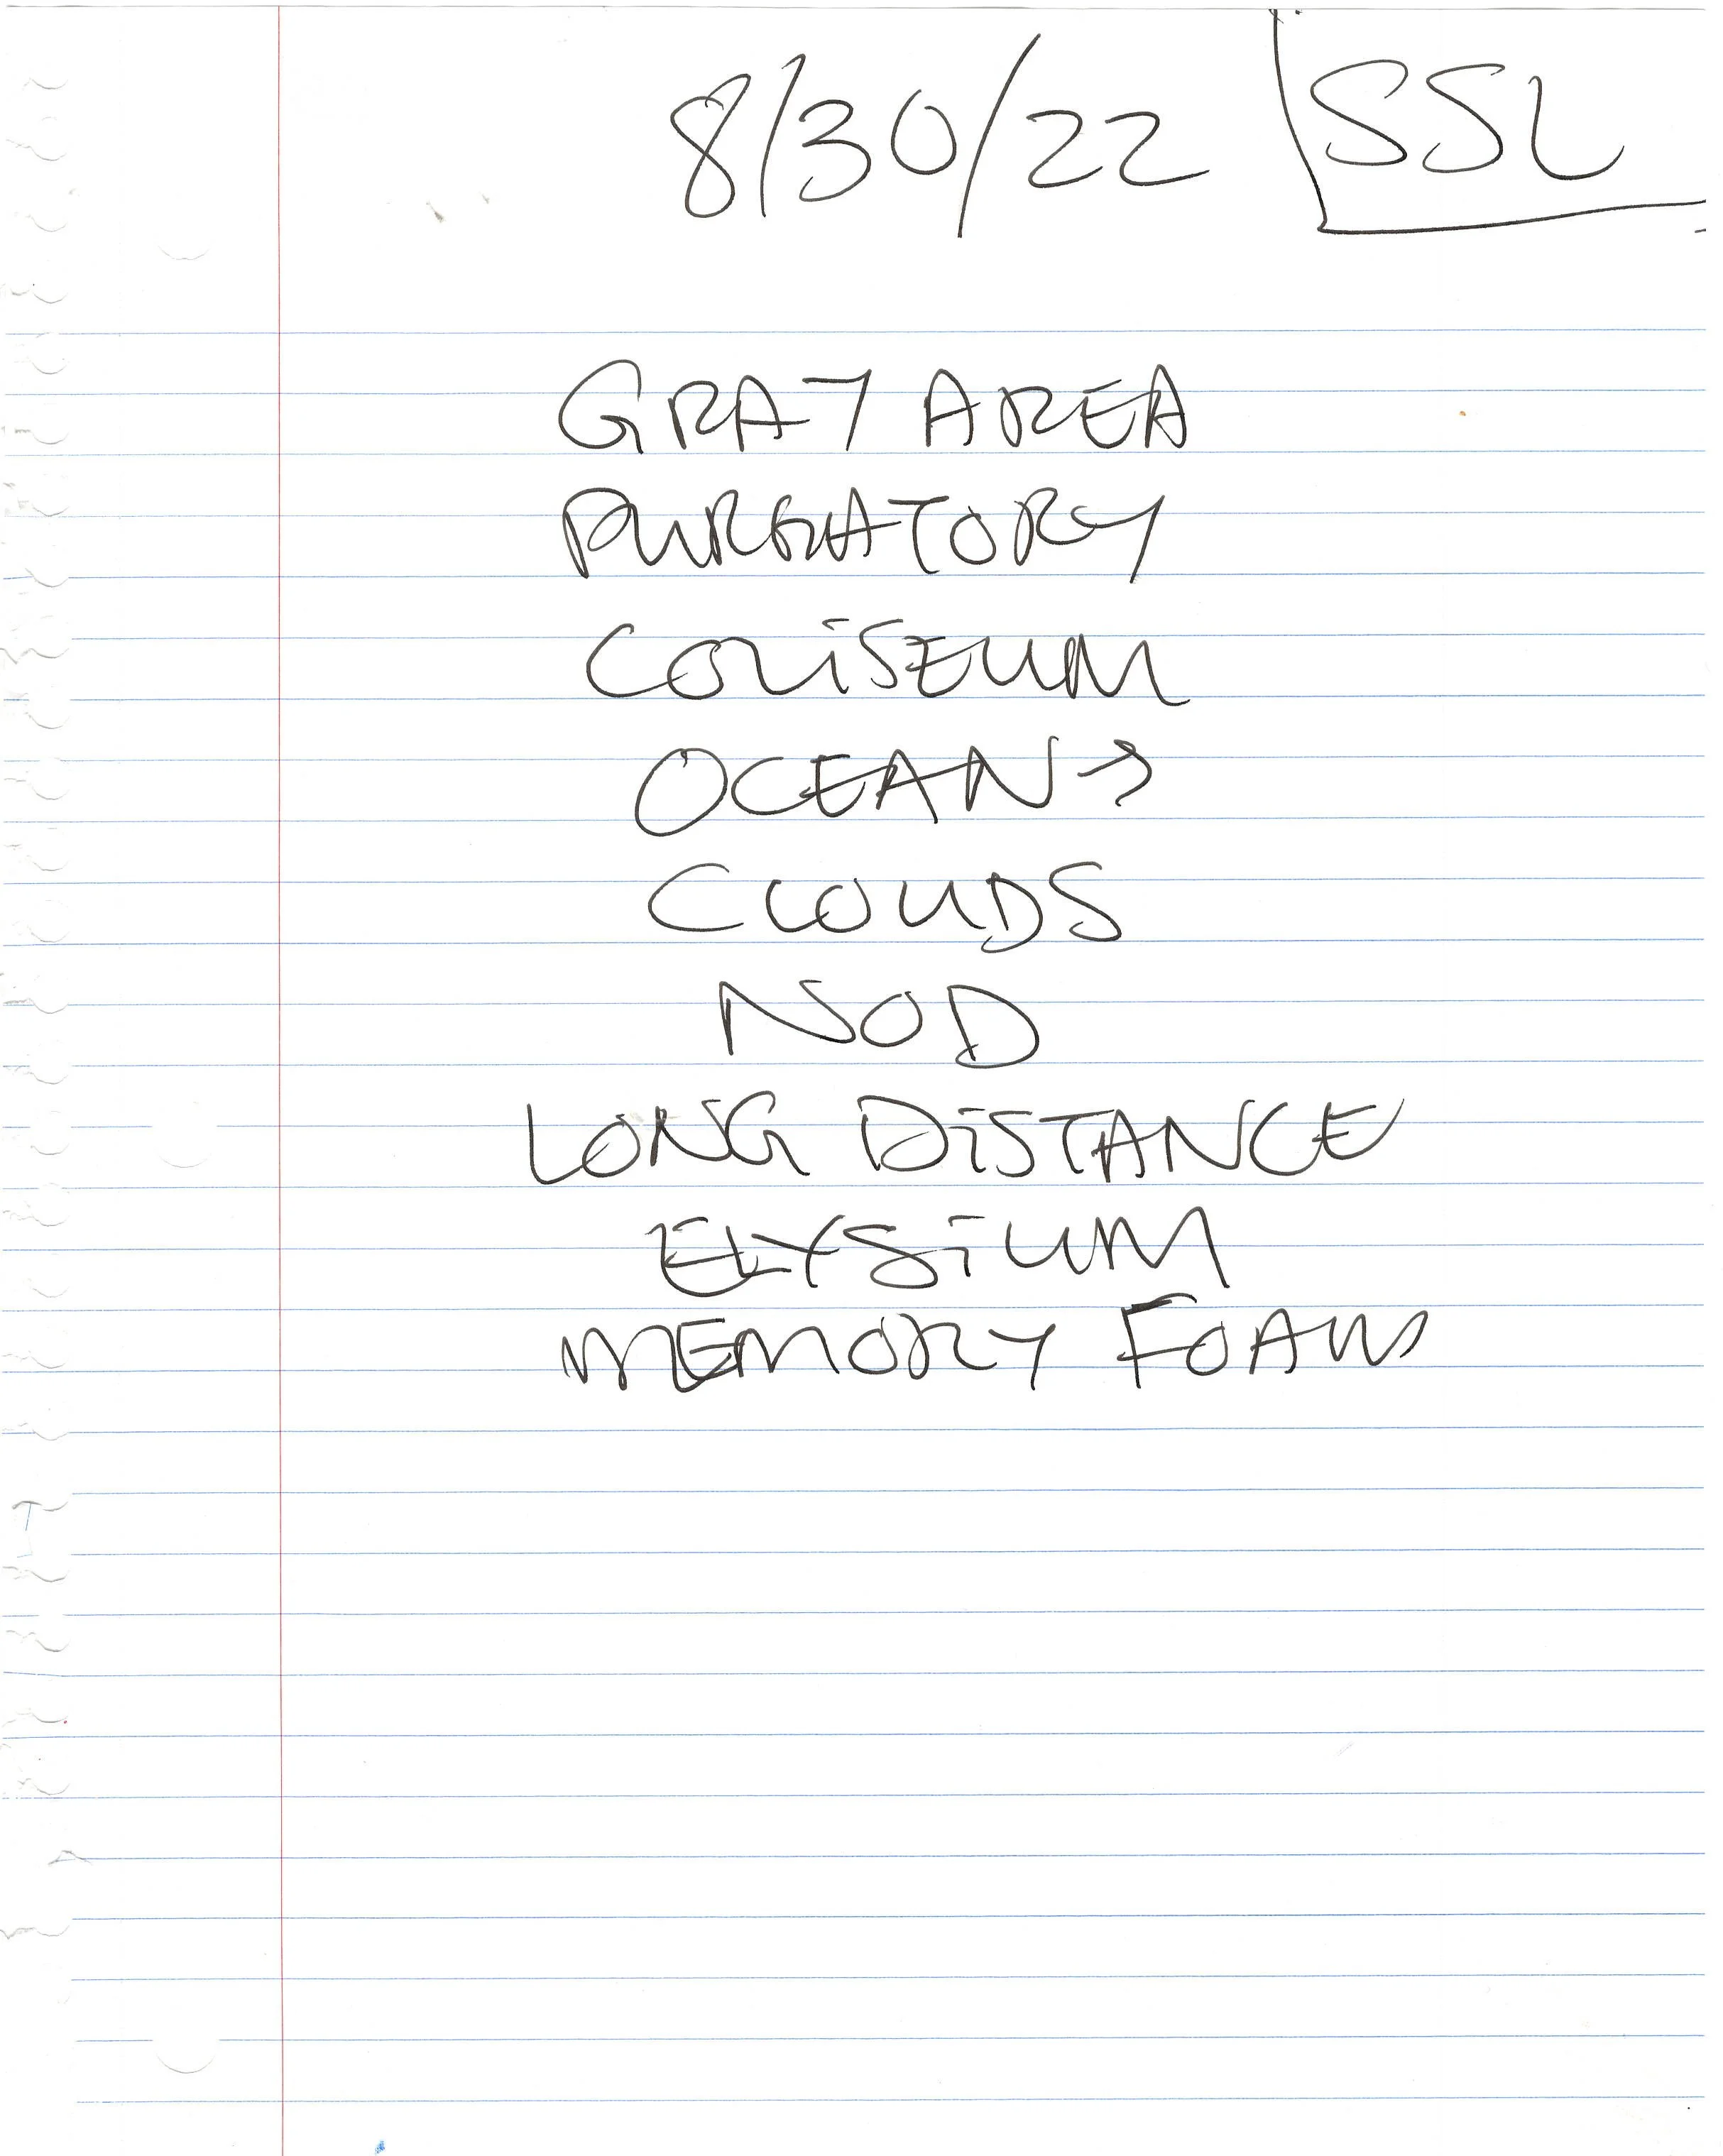 8/30/22 SSL
GRAY AREA
PURGATORY
COLiSEUM
OCEAN →
CLOUDS
NOD
LONG DiSTANCE
ELYSiUM
MEMORY FOAM